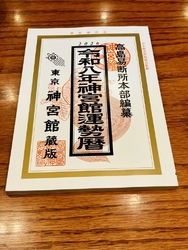 高島易断所本部編纂
2026
令和八年神宮館運勢暦
東京 神宮館 蔵版